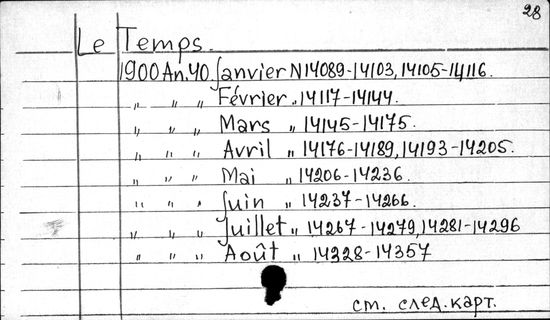 28
Le Temps.
1900 An. 40. Janvier N 14089-14103, 14105-14116.
„ „ „ Février „ 14117-14144.
„ „ „ Mars „ 14145-14175.
„ „ „ Avril „ 14176-14189, 14193-14205.
„ „ „ Mai „ 14206-14236.
„ „ „ Juin „ 14237-14266.
„ „ „ Juillet „ 14267-14279, 14281-14296
„ „ „ Août „ 14328-14357
см. след. карт.